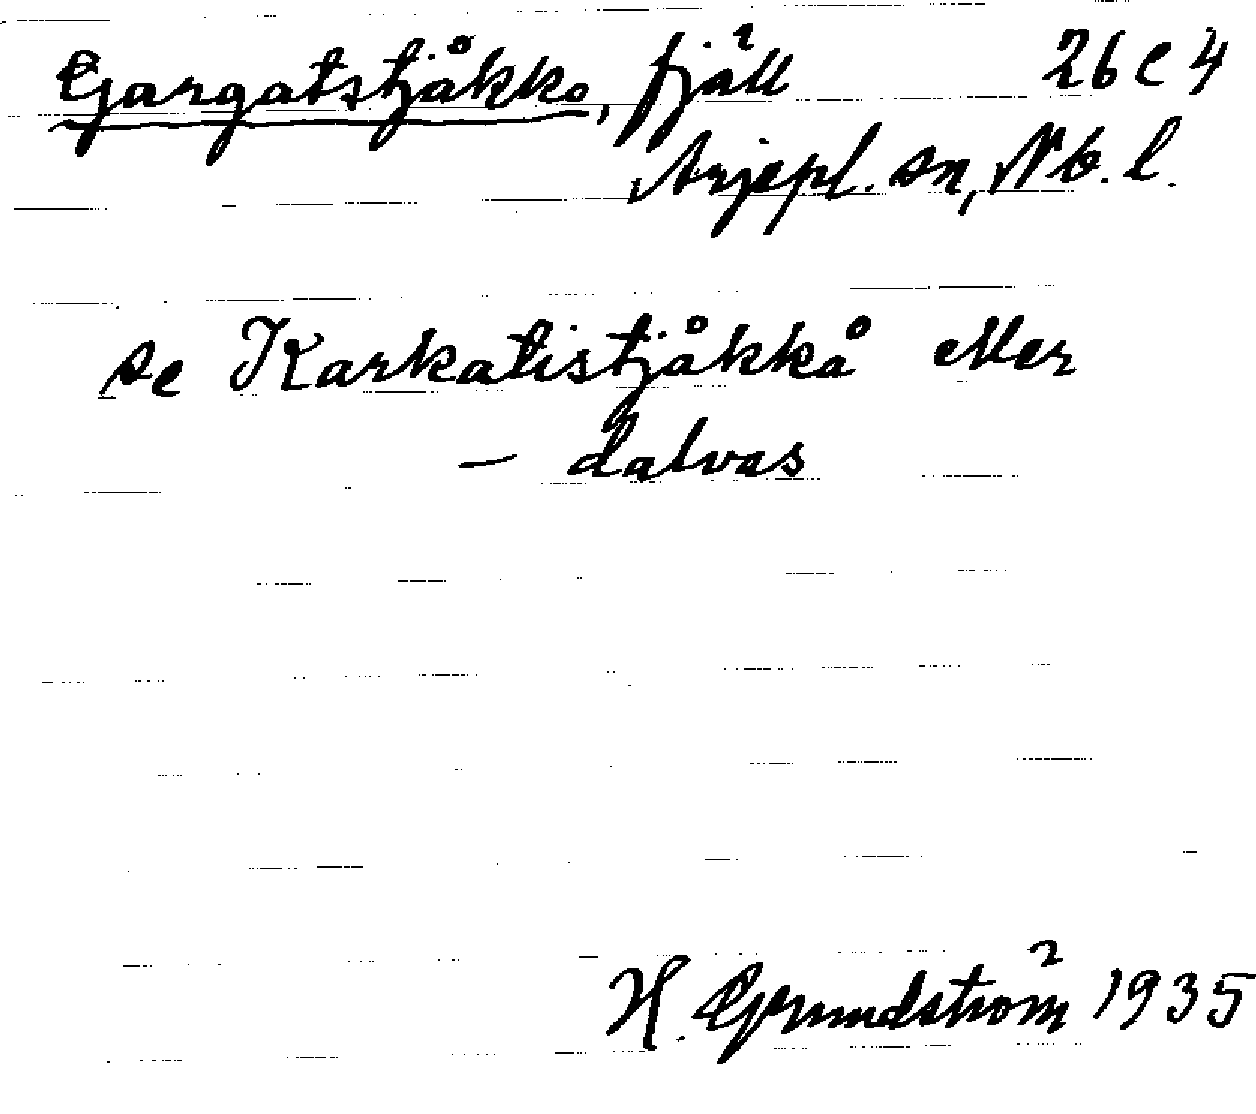 Gargatstjåkko, fjäll 26 C 4
Arjepl. sn, Nb. l.
se Karkatistjåkkå eller
— dalvas
H. Grundström 1935